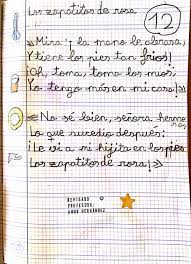 Los zapatitos de rosa
12
«Mira: ¡la mano le abrasa,
Y tiene los pies tan fríos!
¡Oh, toma, toma los míos;
Yo tengo más en mi casa!»
«No sé bien, señora hermosa
Lo que sucedió después:
¡Le vi a mi hijita en los pies
Los zapatitos de rosa!»
REVISADO
PROFESORA:
HERNÁNDEZ